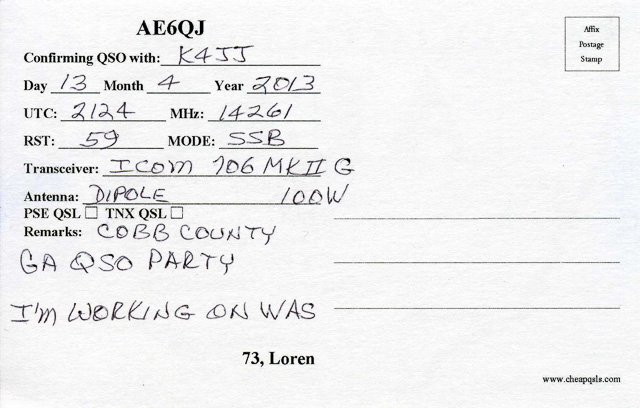 AE6QJ
Affix
Postage
Stamp
Confirming QSO with: K4JJ
Day 13 Month 4 Year 2013
UTC: 2124 MHz: 14261
RST: 59 MODE: SSB
Transceiver: ICOM 706 MK II G
Antenna: DIPOLE 100W
PSE QSL TNX QSL
Remarks: COBB COUNTY
GA QSO PARTY
I'M WORKING ON WAS
73, Loren
www.cheapqsls.com